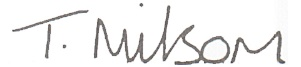 T. Milsom